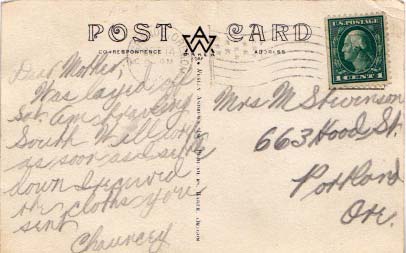 POST CARD
CORRESPONDENCE
ADDRESS
U.S. POSTAGE
1 CENT 1
Dear Mother,
Was layed off
Sat. Am
South Will work
as soon as I
down I received
the cloths you
sent
Chauncey
Mrs M Stevenson
663 Hood St.
Portland
Ore.